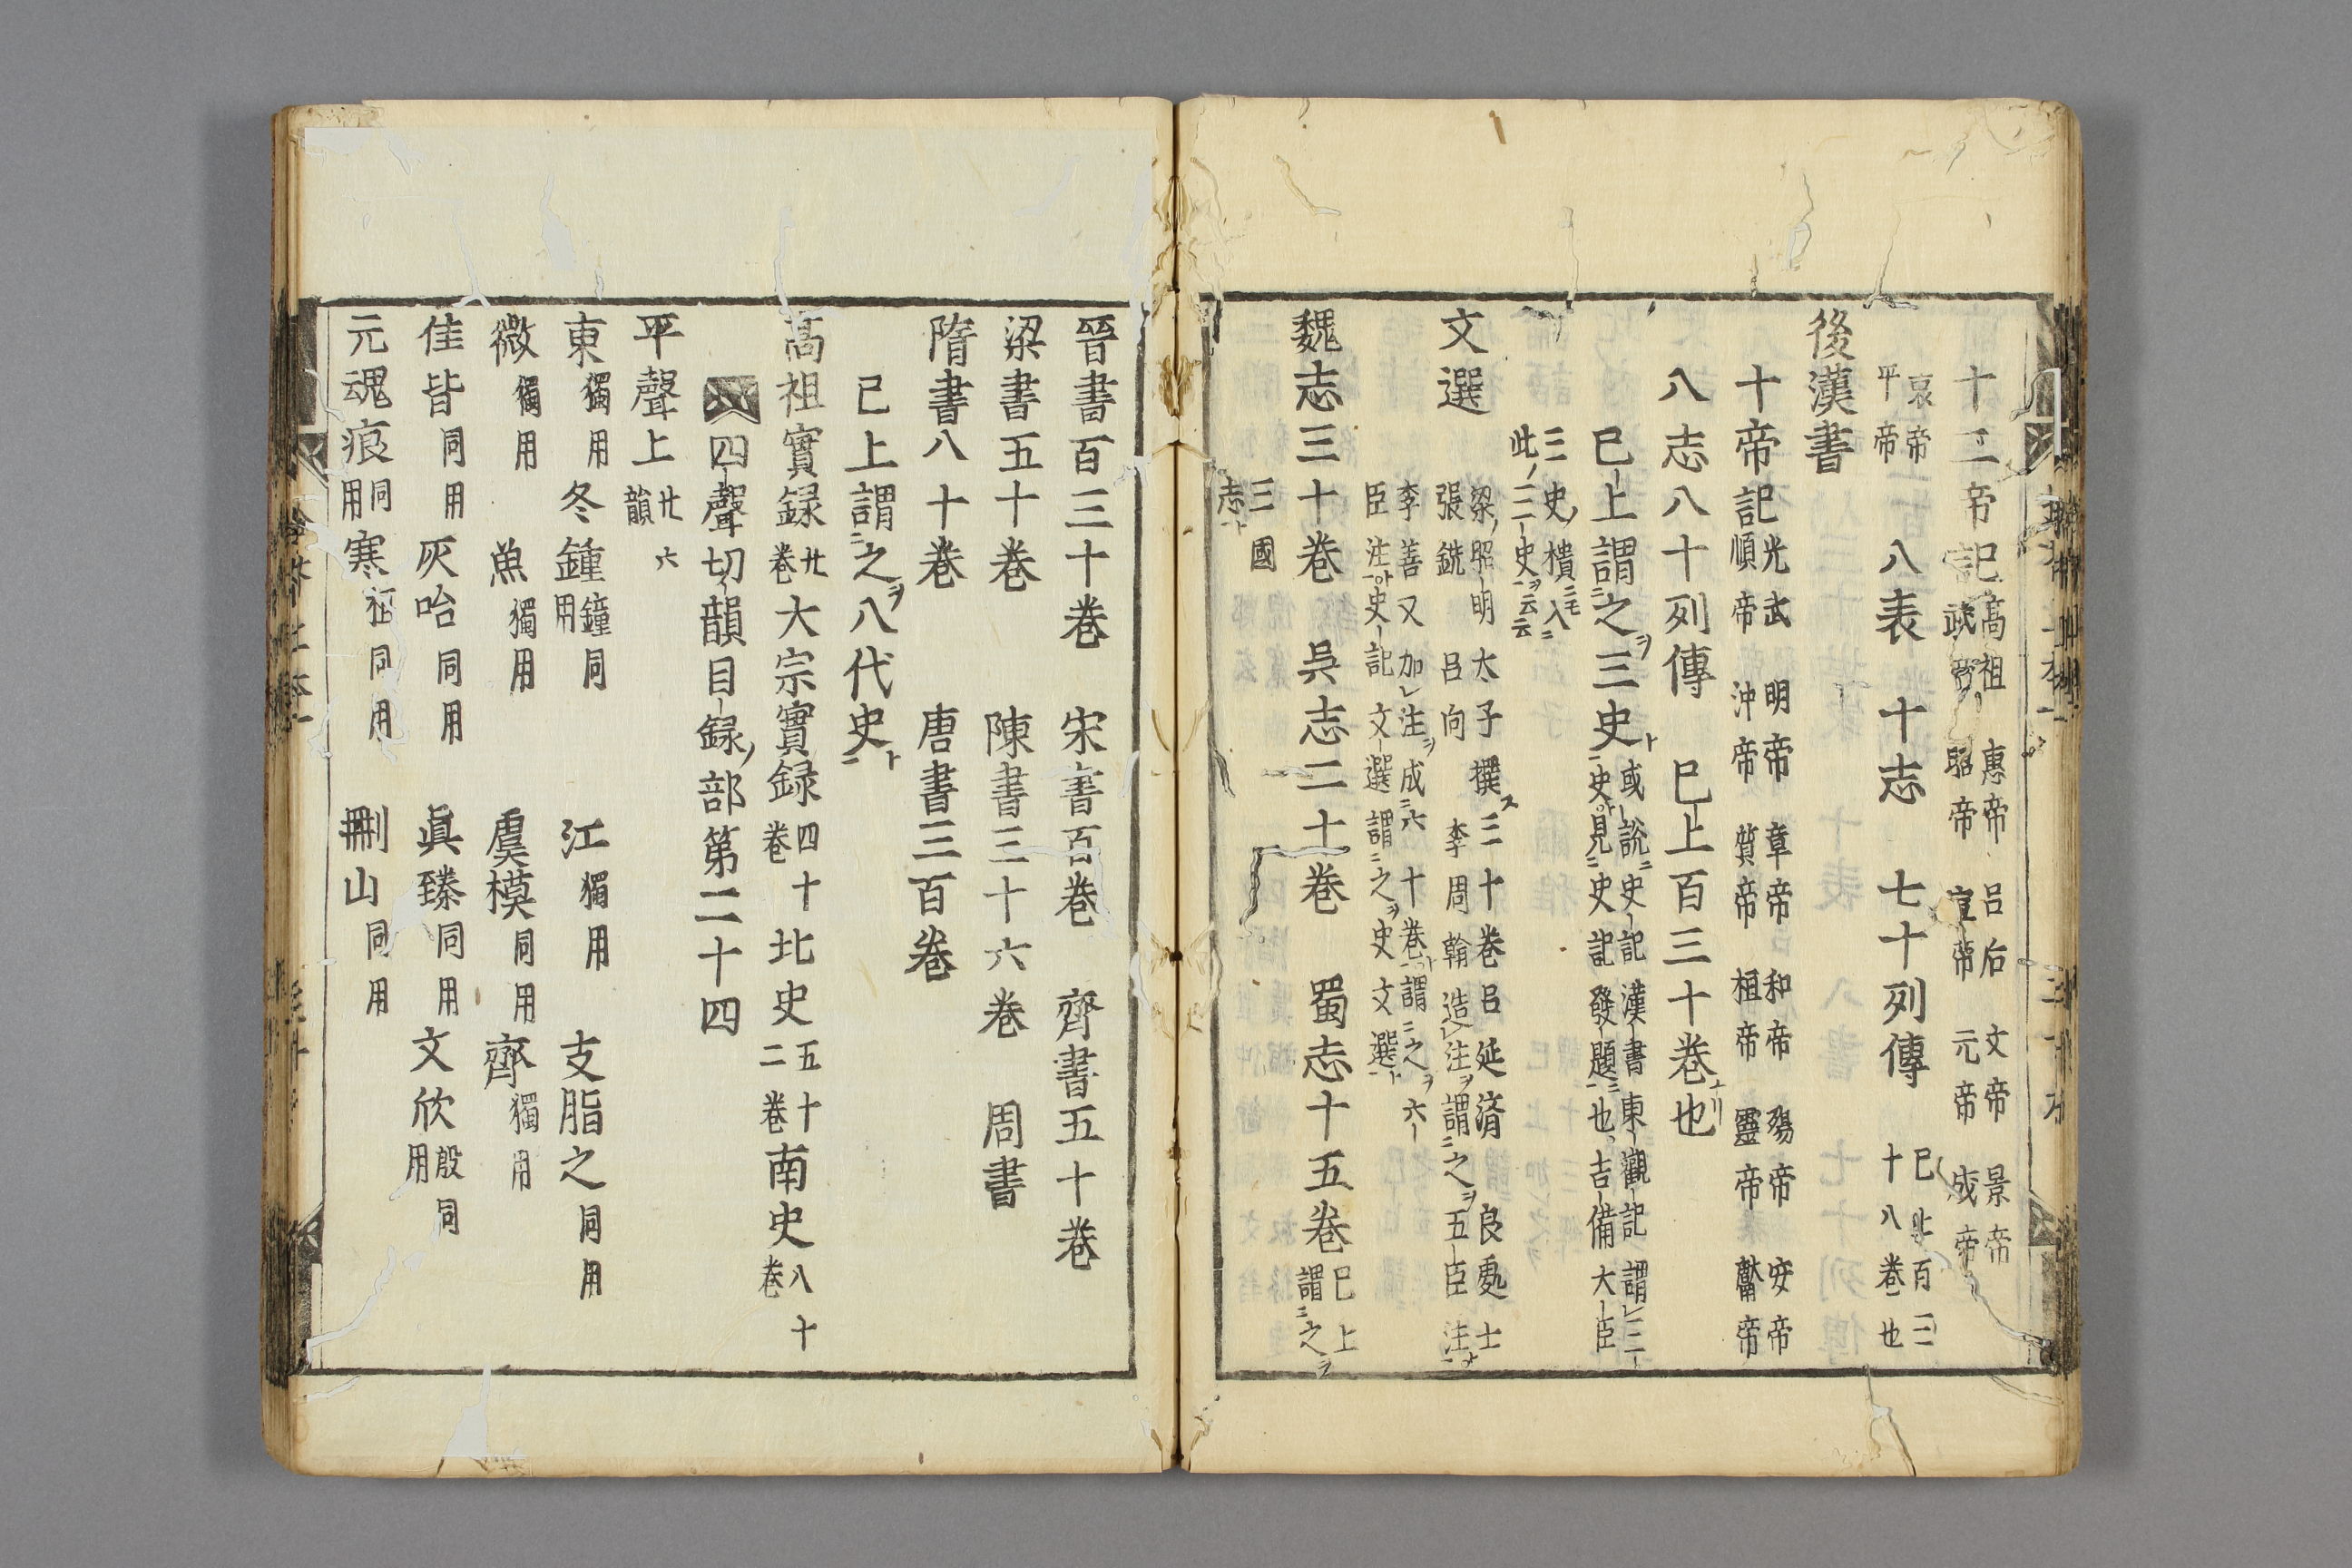 十二帝記 高祖 惠帝 呂后 文帝 景帝 武帝 昭帝 宣帝 元帝 成帝
哀帝 平帝 八表 十志 七十列傳 巳上百二十八卷也
後漢書
十帝記 光武 明帝 章帝 和帝 殤帝 安帝 順帝 沖帝 質帝 桓帝 靈帝 獻帝
八志 八十列傳 巳上百三十卷也
巳上謂之三史 或說史記漢書東觀記謂三史見史記發題也吉備大臣
三史樻入此三史云云
文選 梁昭明太子撰三十卷呂延濟 良處士張銑 呂向 李周翰造注謂之五臣注
李善又加注成六十卷謂之六臣注史記文選謂之史文選
魏志三十卷 吳志二十卷 蜀志十五卷 巳上謂之
三國志
晉書百三十卷 宋書百卷 齊書五十卷
梁書五十卷 陳書三十六卷 周書
隋書八十卷 唐書三百卷
已上謂之八代史
高祖實録廿卷大宗實録四十卷北史五十二卷南史八十卷
四聲切韻目録部第二十四
平聲上 廿六韻
東獨用 冬鍾鐘同用 江獨用 支脂之同用
微獨用 魚獨用 虞模同用 齊獨用
佳皆同用 灰咍同用 眞臻同用 文欣殷同用
元魂痕同用 寒桓同用 刪山同用